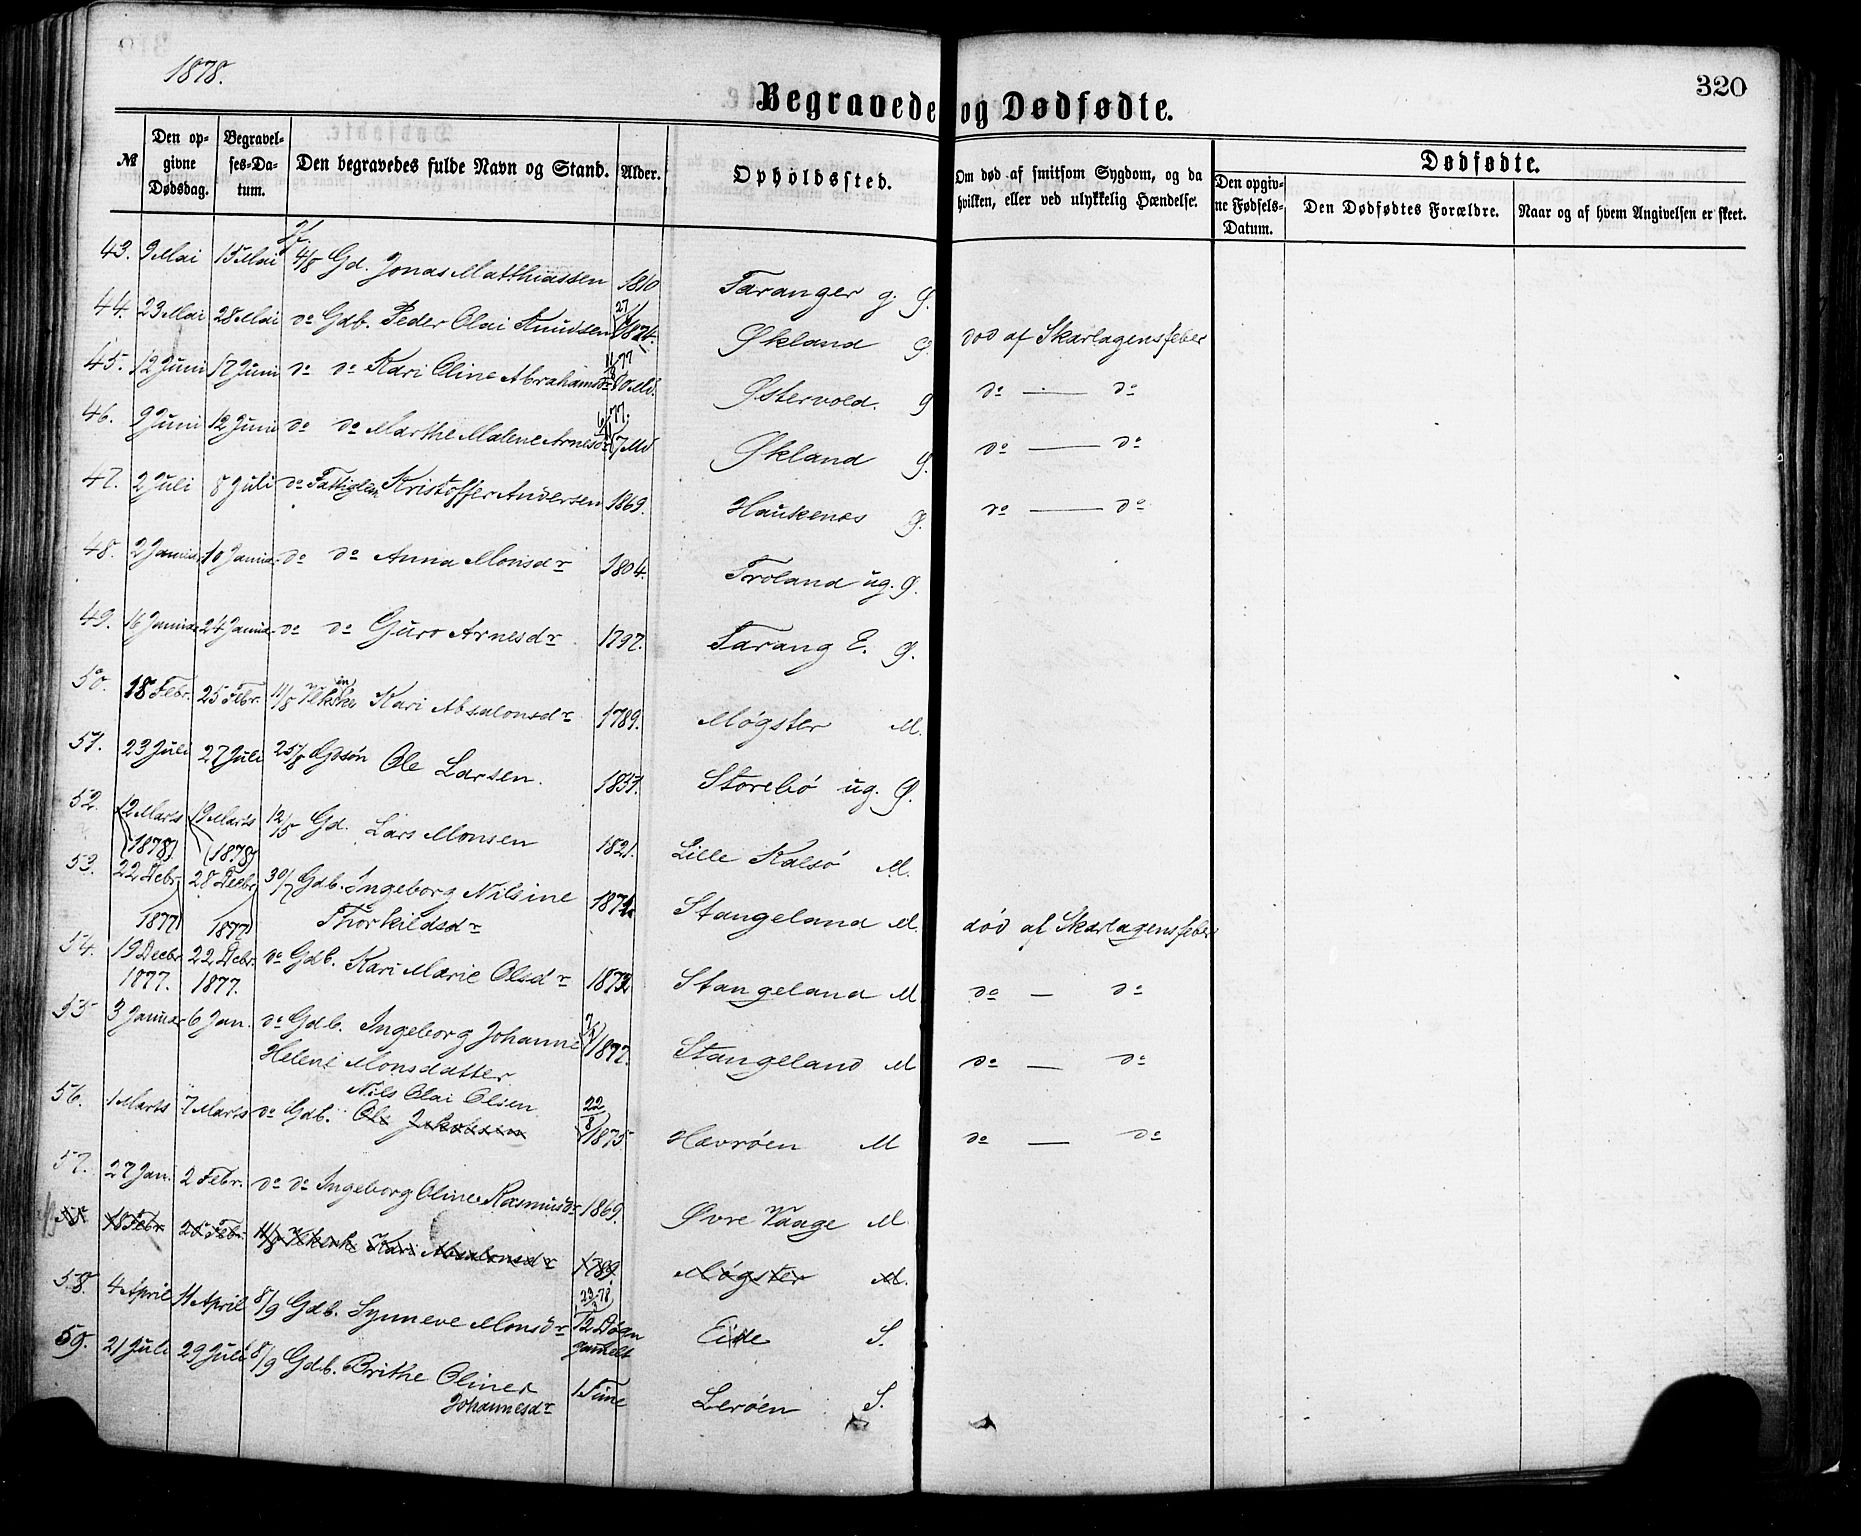 1878.
320
Begravede og Dødfødte.
№ Den opgivne Dødsdag. Begravelses-Datum. Den begravedes fulde Navn og Stand. Alder. Opholdssted. Om død af smitsom Sygdom, og da hvilken, eller ved ulykkelig Hændelse. Dødfødte.
Den opgivne Fødsels-Datum. Den Dødfødtes Forældre. Naar og af hvem Angivelsen er skeet.
43. 9 Mai 15 Mai 4/8 Gd. Jonas Matthiassen 1810 Taranger g. Ø.
44. 23 Mai 28 Mai do Gdb. Peder Olai Knudsen 1874. Økland Ø. død af Skarlagensfeber
45. 12 Juni 17 Juni do do Kari Oline Abrahamsdr Østervold. Ø do — do
46. 9 Juni 12 Juni do do Marthe Malene Arnesdr 7 Md Økland Ø. do — do
47. 2 Juli 8 Juli do Fattiglem Kristoffer Andersen 1869. Haukenæs Ø. do — do
48. 2 Januar 10 Januar do do Anna Monsdr 1804. Troland ug. Ø.
49. 16 Januar 24 Januar do do Guro Arnesdr 1797. Tarang E. Ø.
50. 18 Febr. 25 Febr. 11/8 Kari Absalonsdr 1789. Møgster M.
51. 23 Juli 27 Juli 25/8 Gdsøn Ole Larsen. 1837. Storebø ug. Ø.
52. 12 Marts 19 Marts 12/5 Gd. Lars Monsen 1821. Lille Kalsø M.
(1878) (1878)
53. 22 Debr. 28 Decbr 30/7 Gdb. Ingeborg Nilsine 1874. Stangeland M død af Skarlagensfeber
1877) 1877) Thorkildsdr
54. 19 Decbr 22 Debr. do Gdb. Kari Marie Olsdr 1873 Stangeland M do — do
1877. 1877.
55 3 Januar 6 Jan. do Gdb. Ingeborg Johanne 1877. Stangeland M do — do
Helene Monsdatter
Nils Olai Olsen
56. 1 Marts 7 Marts do Gdb. Ole Jakobsen 22/8 1875 Hævrøen M do — do
57. 27 Jan. 2 Febr. do do Ingeborg Oline Rasmusdr 1869. Øvre Vaage M
18 Febr 25 Febr. 11/8 Kari Absalonsdr 1789. Møgster M.
58. 4 April 11 April 8/9 Gdb. Synneve Monsdr 12 Døgn gammelt Eide S.
59. 21 Juli 29 Juli 8/9 Gdb. Brithe Oline 1 Time Lerøen S.
Johannesdr